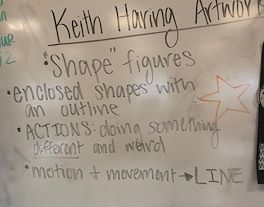 Keith Haring Artwork
"Shape" figures
• enclosed shapes with
an outline
• ACTIONS: doing something
different and weird
• motion + movement → LINE